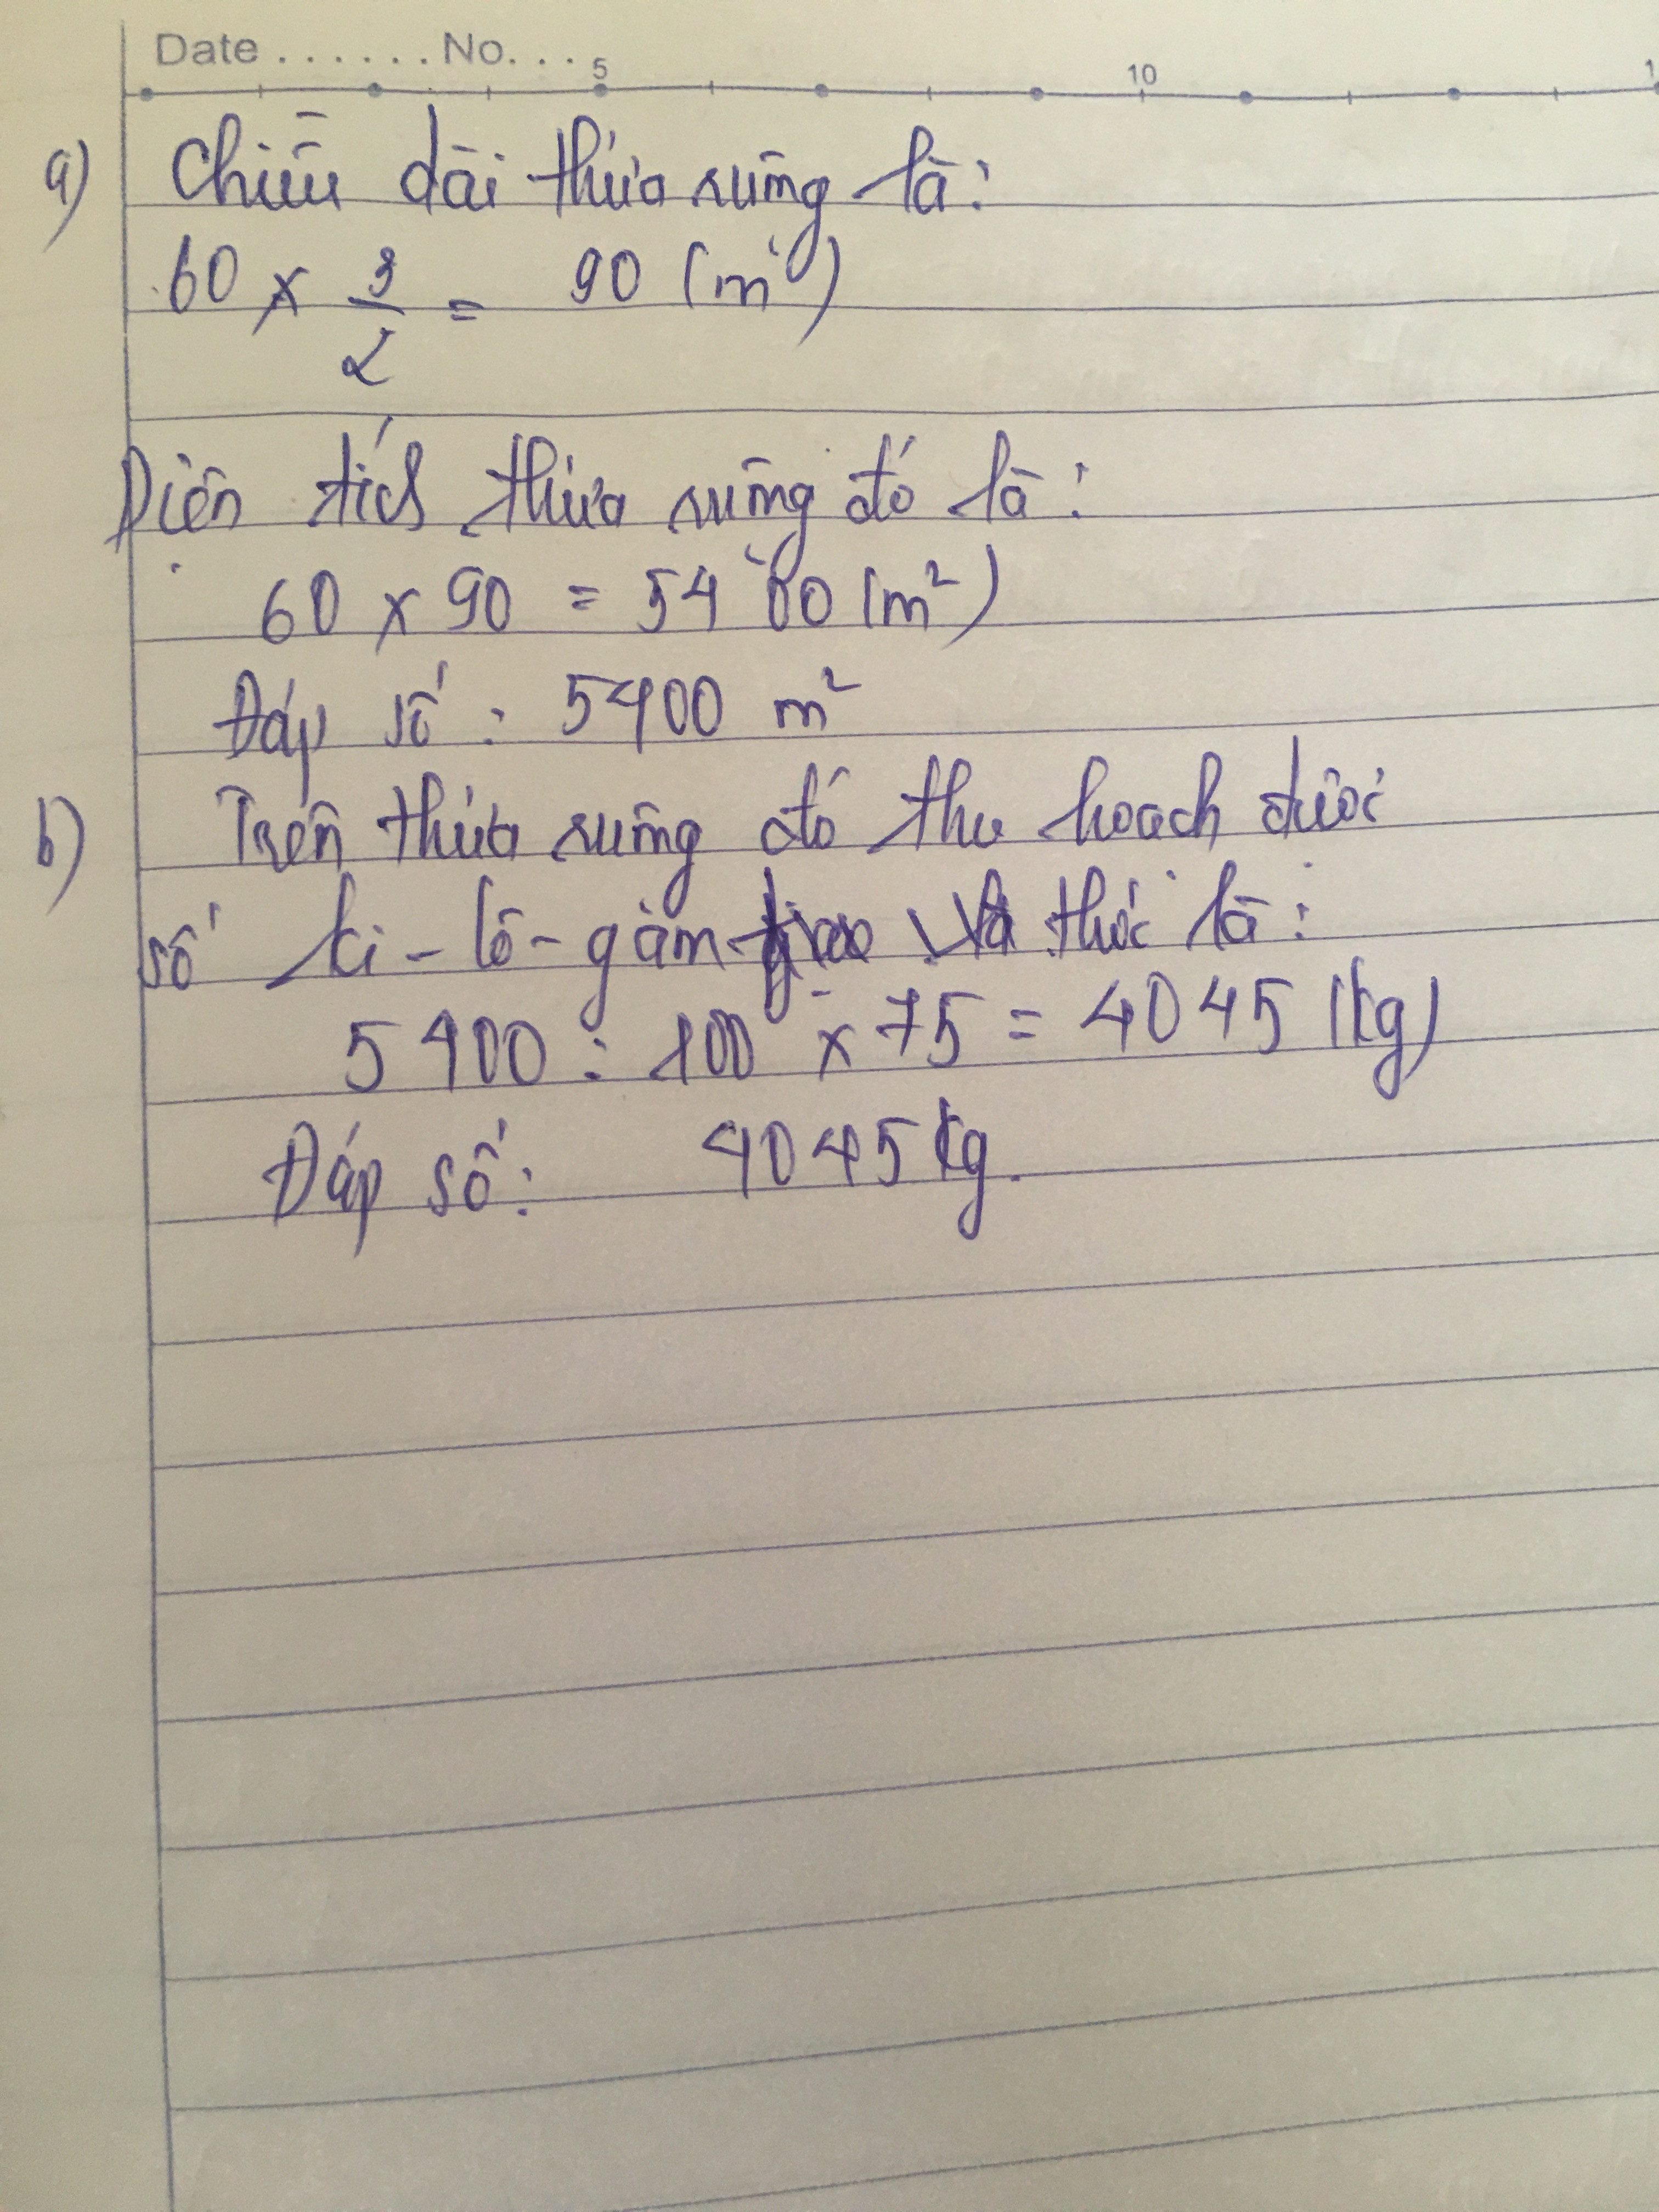 Date . . . . . . . No. . . .
5 10 1
a) Chiều dài thửa ruộng là:
60 x 3/2 = 90 (m)
Diện tích thửa ruộng đó là:
60 x 90 = 5400 (m²)
Đáp số : 5400 m²
b) Trên thửa ruộng đó thu hoạch được
số ki-lô-gam thóc là:
5400 : 100 x 75 = 4045 (kg)
Đáp số: 4045 kg.